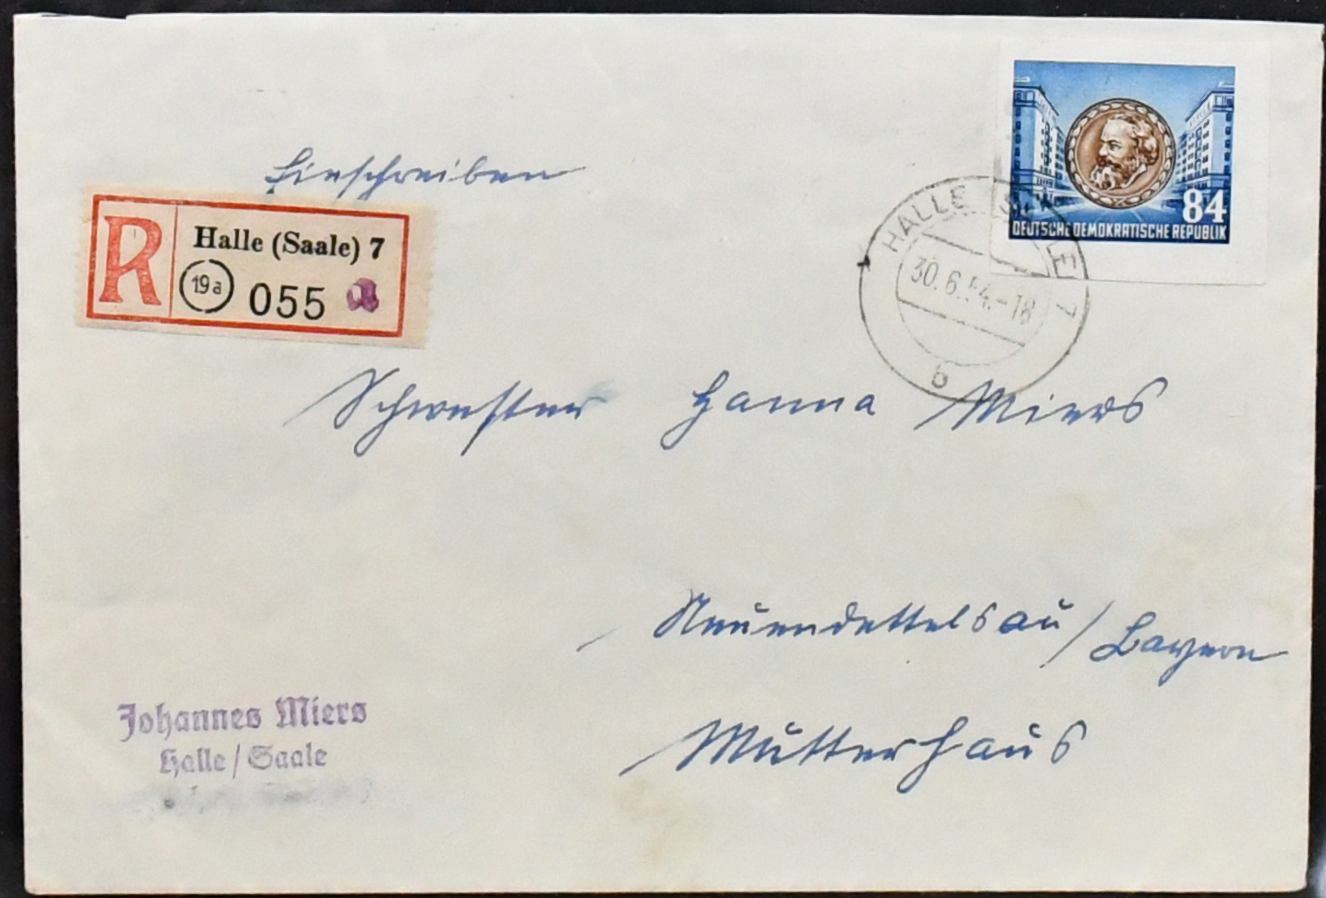 Einschreiben
R
Halle (Saale) 7
19a
055
a
84
DEUTSCHE DEMOKRATISCHE REPUBLIK
HALLE (SAALE) 7
30.6.54.-18
b
Schwester Hanna Miers
Neuendettelsau / Bayern
Mutterhaus
Johannes Miers
Halle / Saale